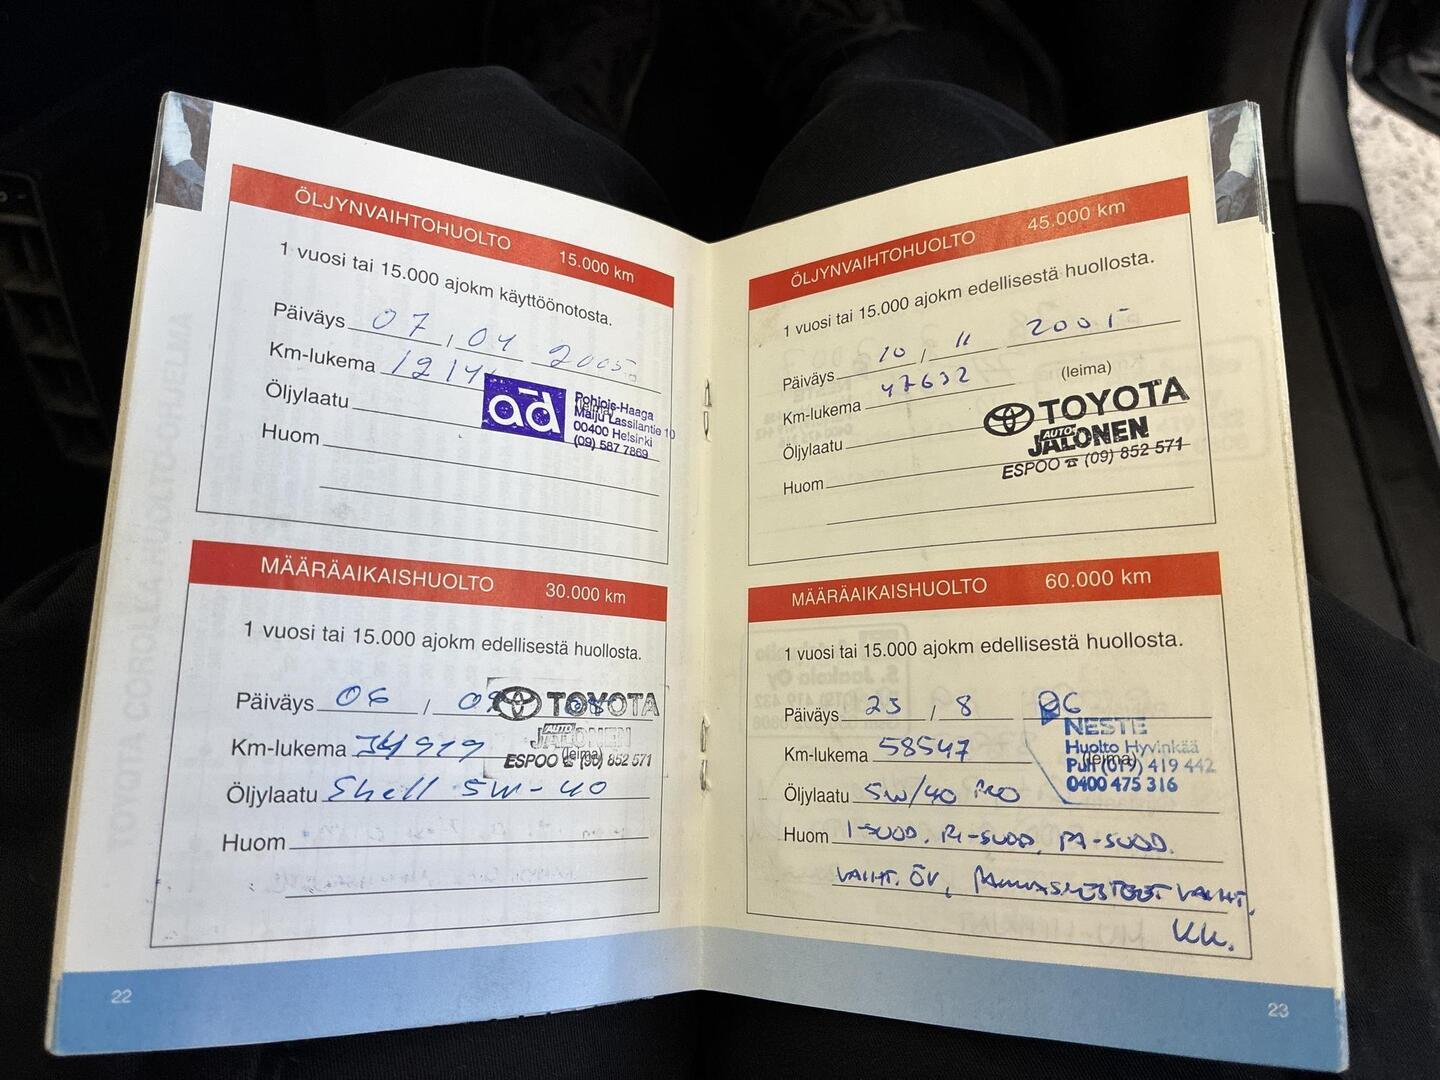 ÖLJYNVAIHTOHUOLTO 15.000 km
1 vuosi tai 15.000 ajokm käyttöönotosta.
Päiväys 07, 04 2005
Km-lukema
Öljylaatu
ad Pohjois-Haaga
Maiju Lassilantie 10
00400 Helsinki
(09) 587 7869
Huom
MÄÄRÄAIKAISHUOLTO 30.000 km
1 vuosi tai 15.000 ajokm edellisestä huollosta.
Päiväys 06 / 09
TOYOTA
AUTO JALONEN
Km-lukema 34919 (leima)
ESPOO ☎ (09) 852 571
Öljylaatu Shell 5W-40
Huom
22
ÖLJYNVAIHTOHUOLTO 45.000 km
1 vuosi tai 15.000 ajokm edellisestä huollosta.
Päiväys 10 / 11 2005
Km-lukema 47632 (leima)
TOYOTA
AUTO JALONEN
ESPOO ☎ (09) 852 571
Öljylaatu
Huom
MÄÄRÄAIKAISHUOLTO 60.000 km
1 vuosi tai 15.000 ajokm edellisestä huollosta.
Päiväys 25 / 8 06
NESTE
Km-lukema 58547
Huolto Hyvinkää
Puh (019) 419 442
0400 475 316
(leima)
Öljylaatu 5W/40
Huom I-SUOD. RI-SUOD, PA-SUOD.
VAIHT. ÖV, VAIHT.
KK.
23
TOYOTA COROLLA HUOLTO-OHJELMA